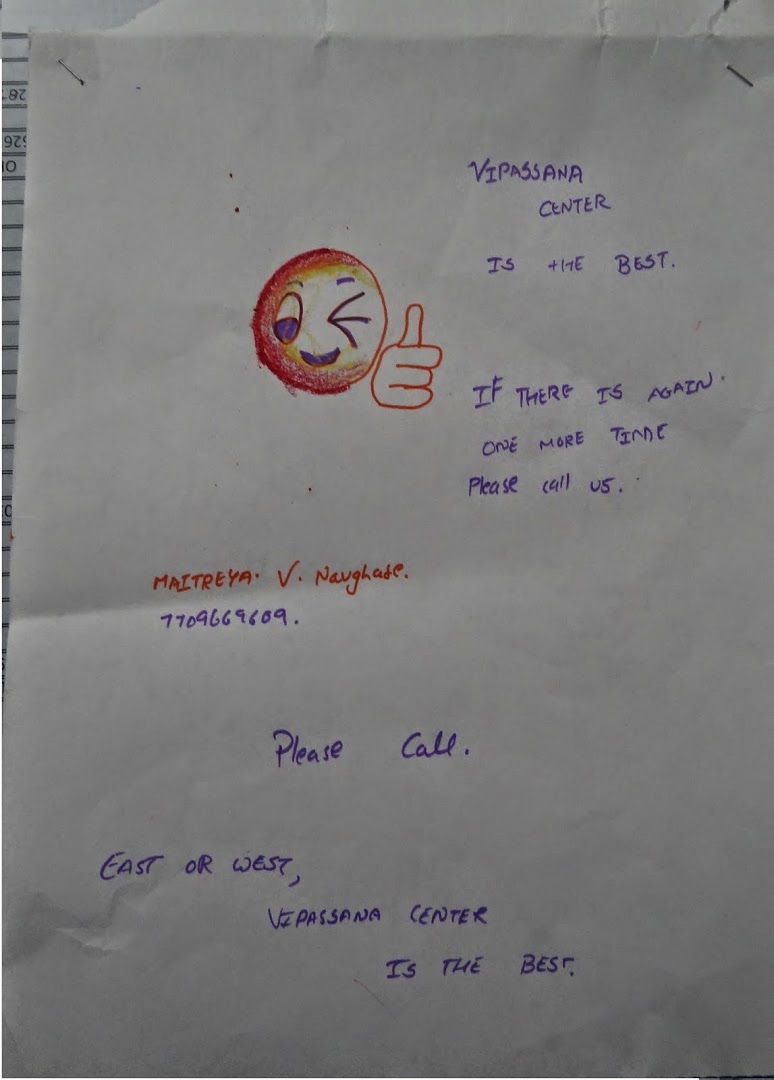 VIPASSANA
CENTER
IS THE BEST.
IF THERE IS AGAIN.
ONE MORE TIME
Please call us.
MAITREYA. V. Navghate.
7709669609.
Please Call.
EAST OR WEST,
VIPASSANA CENTER
IS THE BEST.